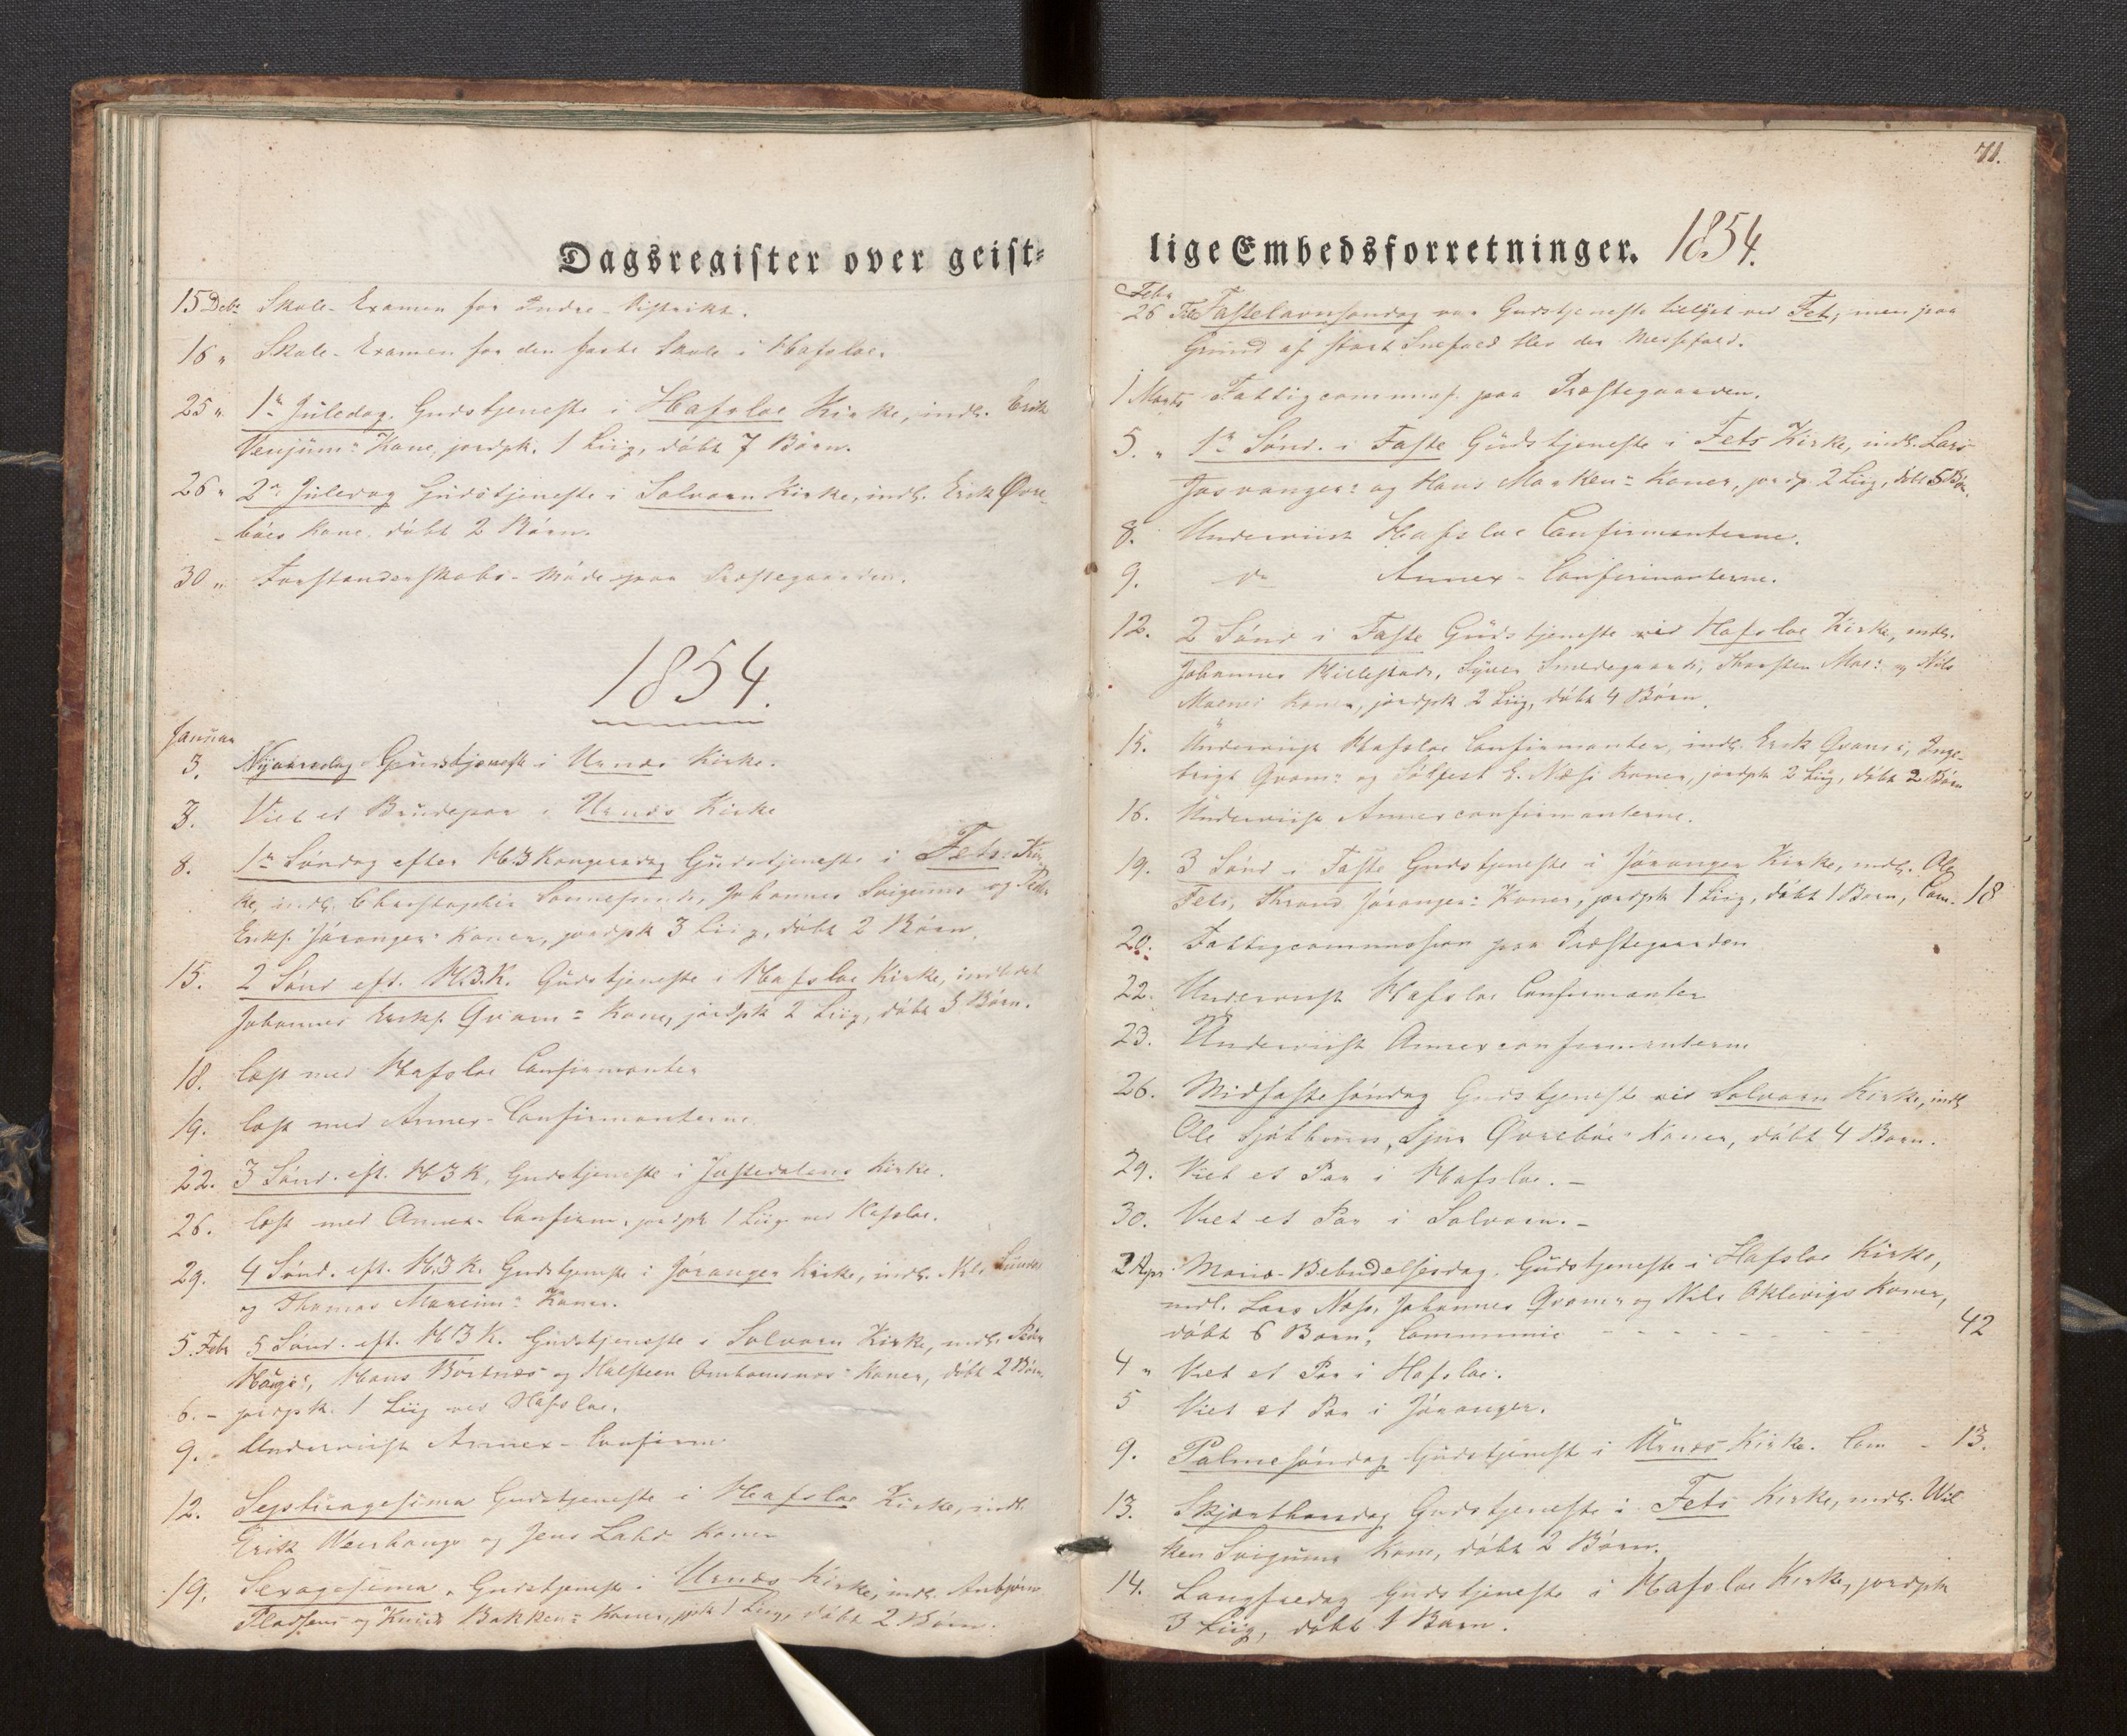 Dagsregister over geist-
15 Debr Skole-Examen for Indre-Distrikt.
16 " Skole-Examen for den faste Skole i Hafsloe.
25 " 1ste Juledag. Gudstjeneste i Hafsloe Kirke, indl. Erik
Venjums Kone, jordpk. 1 Liig, døbt 7 Børn.
26 " 2den Juledag Gudstjeneste i Solvorn Kirke, indl. Erik Øvre-
bøes Kone, døbt 2 Børn.
30 " Forstanderskabs-Møde paa Præstegaarden.
1854.
Januar
3. Nyaarsdag Gudstjeneste i Urnæs Kirke.
3. Viet et Brudepar i Urnæs Kirke
8. 1ste Søndag efter H3Kongersdag Gudstjeneste i Fets Kir-
ke, indl. Johannes Svigums og Peder
Eriks. Joranger: Koner, jordpk 3 Liig, døbt 2 Børn.
15. 2 Sønd eft. H.3.K. Gudstjeneste i Hafsloe Kirke, indledet
Johannes Eriks. Qvam: Kone, jordpk 2 Liig, døbt 3 Børn.
18. læst med Hafsloe Confirmanter
19. læst med Annex-Confirmanterne.
22. 3 Sønd. eft. H3K, Gudstjeneste i Jostedalens Kirke.
26. læst med Annex-Confirm. jordpk 1 Liig ved Hafsloe.
29. 4 Sønd. eft. H.3.K. Gudstjeneste i Joranger Kirke, indl. Nils
og Thomas Mareims Koner.
5. Febr 5 Sønd. eft. H3K. Gudstjeneste i Solvorn Kirke, indl. Peder
Hauge:, Hans Børtnæs og Halsteen Koner, døbt 2 Børn.
6. - jordpk. 1 Liig ved Hafsloe.
9. - Underviist Annex-Confirm
12. Septuagesima Gudstjeneste i Hafsloe Kirke, indl.
Erik og Jens Lahd Koner
19. Sexagesima, Gudstjeneste i Urnæs Kirke, indl. Anbjørn
og Knud Bakken: Koner, jpk 1 Liig, døbt 2 Børn.
71.
lige Embedsforretninger. 1854.
Febr
26 Til Fastelavnsøndag var Gudstjeneste tillyst ved Fet, men paa
Grund af stort Snefald blev der Messefald.
1 Marts Fattigcommiss. paa Præstegaarden.
5. " 1ste Sønd. i Faste Gudstjeneste i Fets Kirke, indl. Lars
og Hans Marken: Koner, jordp. 2 Liig, døbt 5 Børn.
8. Underviist Hafsloe Confirmanterne.
9. do Annex-Confirmanterne.
12. 2 Sønd i Faste Gudstjeneste ved Hafsloe Kirke, indl.
Johannes Hillestads, Syver Smedegaards, Thorsten Moe: og Nils
Moens Koner, jordpk 2 Liig, døbt 4 Børn.
15. Underviist Hafsloe Confirmanter, indl. Erik Qvams, Inge-
brigt Qvam: og Sølfest E. Næss Koner, jordpk 2 Liig, døbt 2 Børn
16. Underviist Annexconfirmanterne.
19. 3 Sønd i Faste Gudstjeneste i Joranger Kirke, indl. Ole
Fets, Thrond Joranger: Koner, jordpk 1 Liig, døbt 1 Barn, Com. 18
20. Fattigcommission paa Præstegaarden
22. Underviist Hafsloe Confirmanter
23. Underviist Annexconfirmanterne
26. Midfastesøndag Gudstjeneste ved Solvorn Kirke, indl
Ole Sjøthuns, Sjur Øvrebøe: Koner, døbt 4 Børn.
29. Viet et Par i Hafsloe. -
30. Viet et Par i Solvorn. -
2 Apr. Mariæ-Bebudelsesdag. Gudstjeneste i Hafsloe Kirke,
indl. Lars Næss, Johannes Qvams og Nils Oklevigs Koner,
døbt 6 Børn, Communic - - - - - - - 42
4 " Viet et Par i Hafsloe.
5 Viet et Par i Joranger.
9. Palmesøndag Gudstjeneste i Urnæs Kirke. Com - 13.
13. Skjærthorsdag Gudstjeneste i Fets Kirke, indl. Wil
ken Svigums Kone, døbt 2 Børn.
14. Langfredag Gudstjeneste i Hafsloe Kirke, jordpk
3 Liig, døbt 1 Barn.